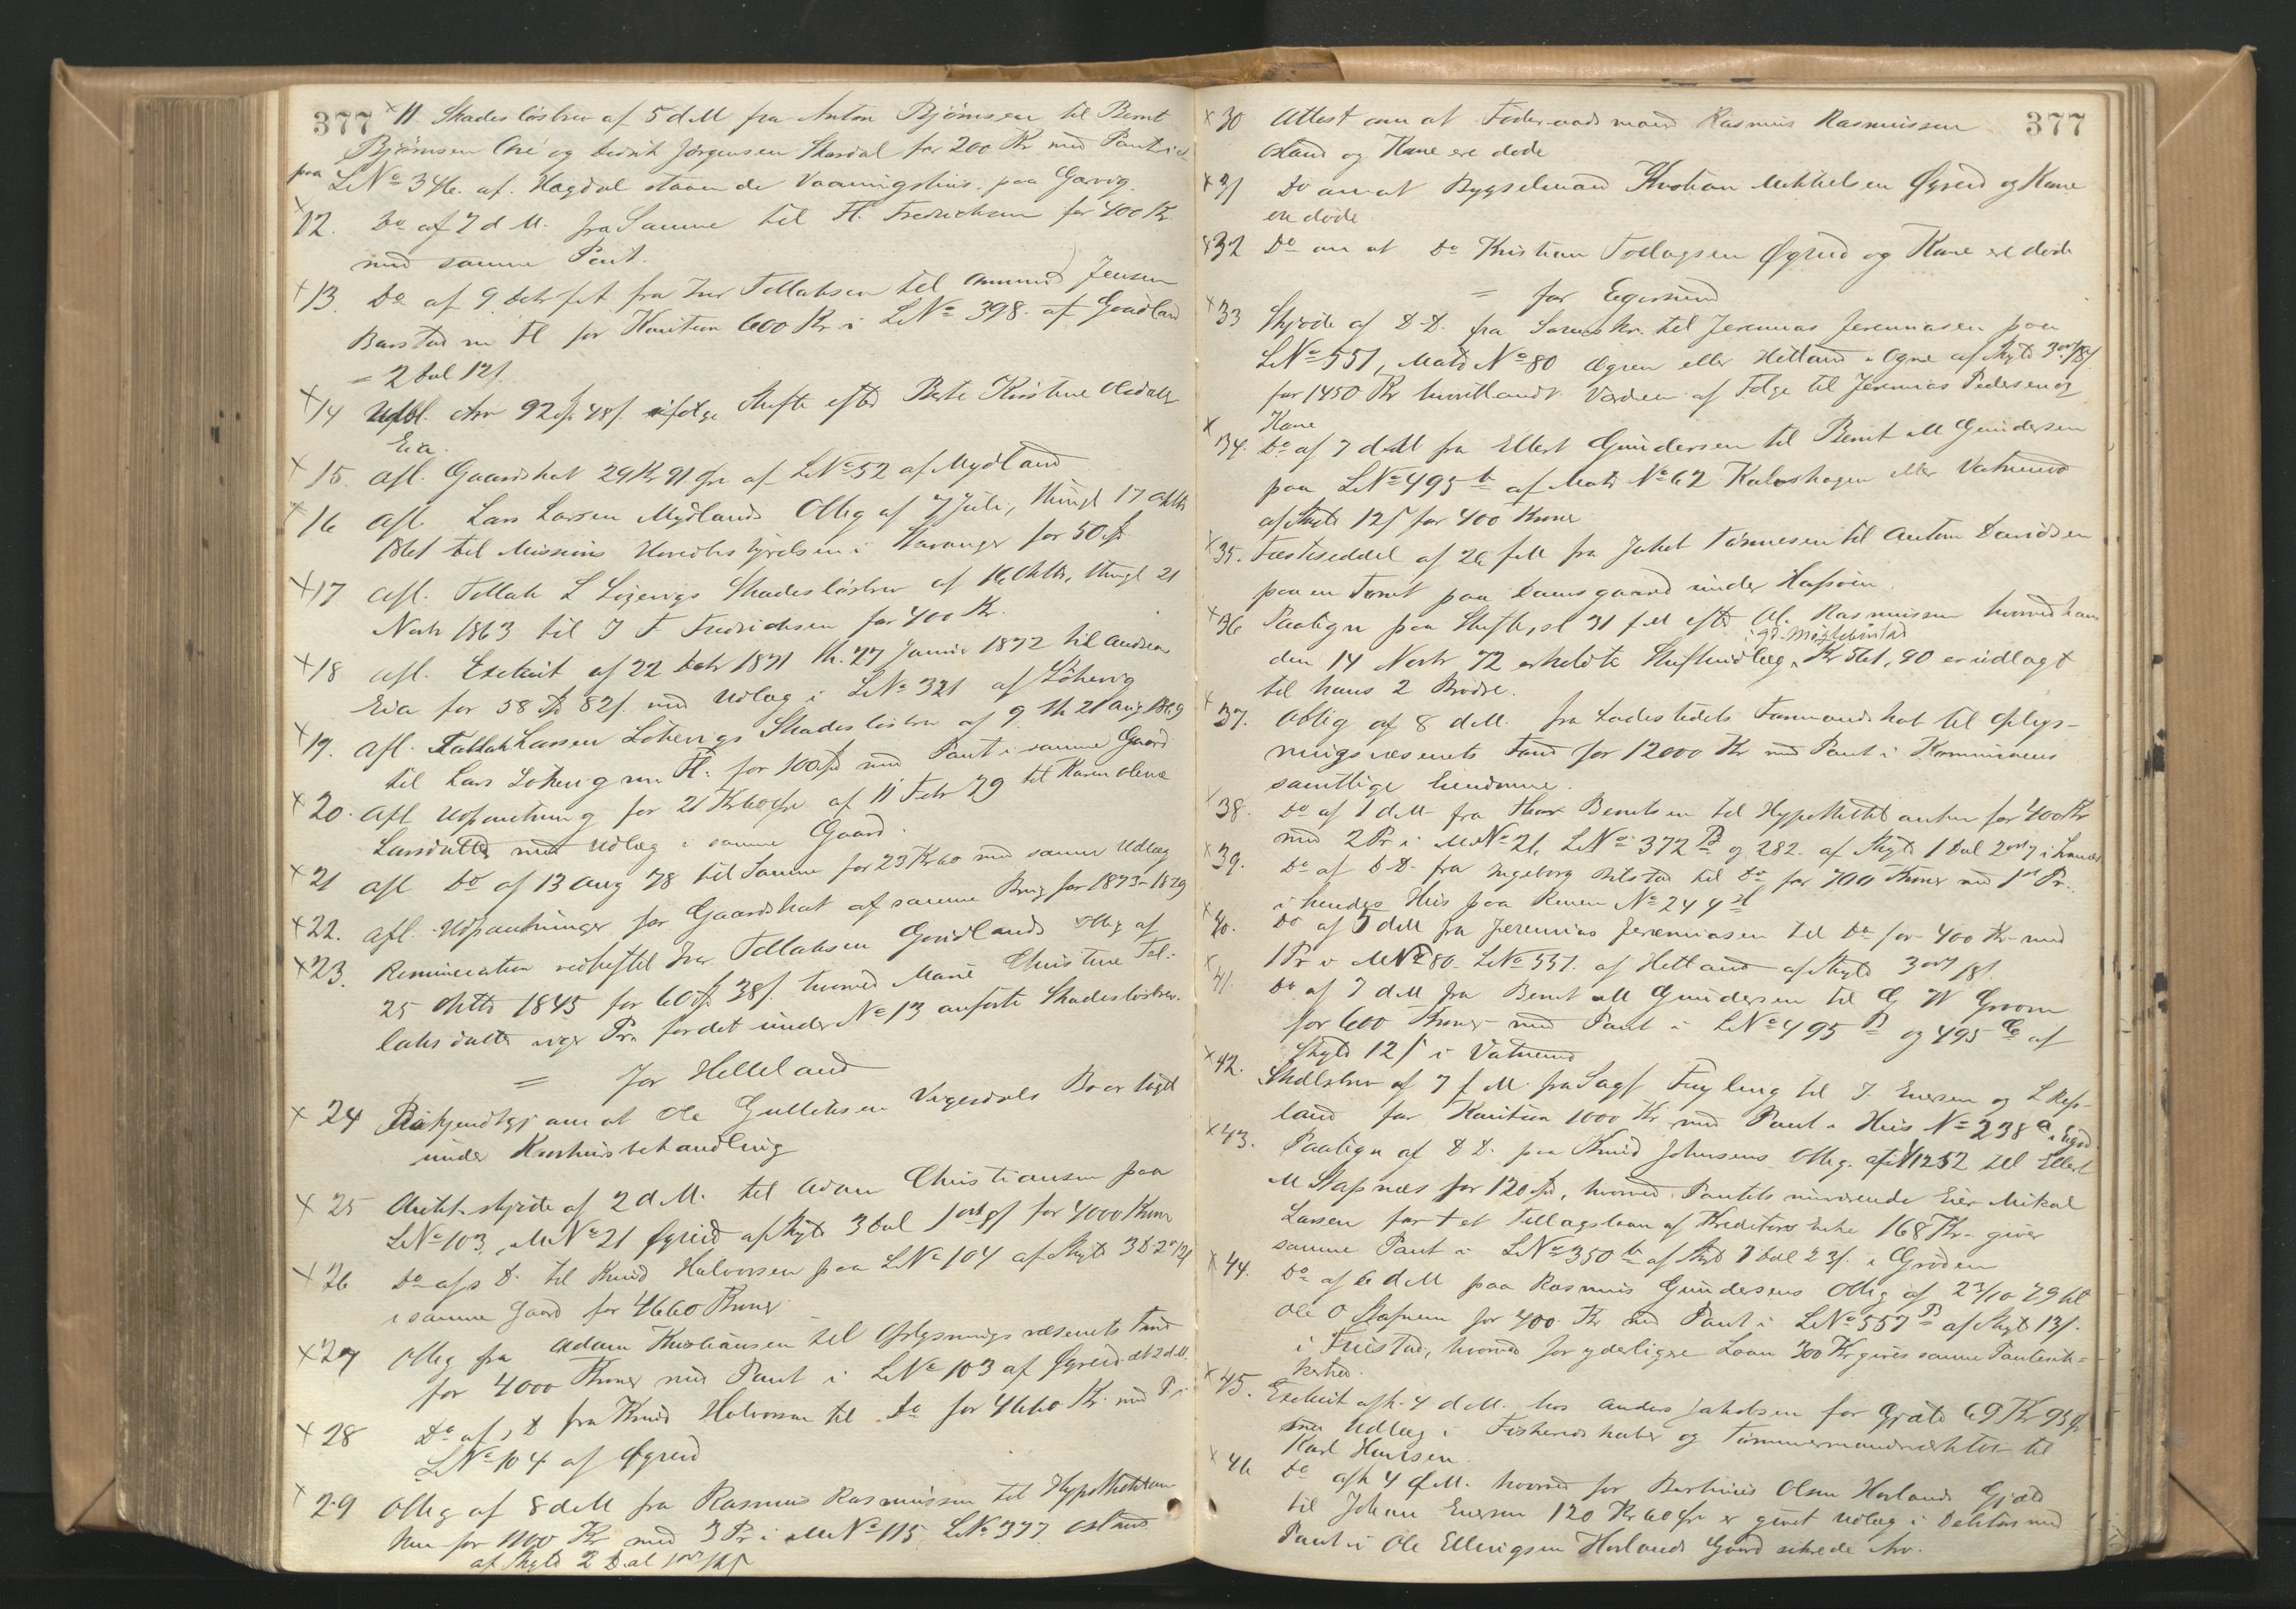 377 × 11. Skadesløsbrev af 5 d M fra Anton Bjørnsen til Bernt
Bjørnsen Aae og Jørgensen Skardal for 200 Kr med Pant i et
paa LNo 346. af Hagdal staaende Vaaningshus paa Garvig.
× 12. Do af 7 d M. fra Samme til Fl. Fredrichsen for 400 Kr
med samme Pant.
× 13. Do af 9 Debr f A fra Iver Tollaksen til Ammund Jensen
Barstad m Fl for Kaution 600 Kr i LNo 398. af Goudland
= 2 Dal 12 s.
× 14 Udbl. Arv 92 48 s. ifølge Skifte efter Berte Kirstine Olsdatter
Eia.
× 15. Afl. Gaardskat 29 Kr 91 Øre af LNo 52 af Mydland
× 16 Afl. Lars Larsen Mydlands Oblig af 7 Juli, thingl 17 Oktbr
1861 til Missions Hovedbestyrelsen i Stavanger for 50 Spd
× 17 Afl. Tollak L Løgevigs Skadesløsbrev af 16 Oktbr, thingl 21
Novbr 1863 til J F Fredrichsen for 400 Kr.
× 18 Afl. Exekut af 22 Debr 1871 th. 27 Januar 1872 til Andreas
Eia for 58 Spd 82 s. med Udlæg i LNo 321 af Løhevig
× 19. Afl. Tallak Larsen Løhevigs Skadesløsbrev af 9. th 21 Aug 1869
til Lars Løhevig m Fl. for 100 Spd med Pant i samme Gaard
× 20. Afl Udpantning for 21 Kr 60 Øre af 11 Febr 79 til Karen Olene
Larsdatter med Udlæg i samme Gaard.
× 21 Afl Do af 13 Aug 78 til Samme for 23 Kr 60 med samme Udlæg
× 22. Afl. Udpantninger for Gaardskat af samme Brug for 1873-1879
× 23. Renunciation vedheftet Iver Tollaksen Goudlands Oblig af
25 Oktbr 1845 for 60 Spd 38 s. hvorved Marie Christine Tol-
laksdatter viger Pr. for det under No 13 anførte Skadesløsbrev.
= for Helleland
× 24 Bekjendtgj om at Ole Gulliksen Vigesdals Bo er taget
under Konkursbehandling
× 25 Auktskjøde af 2 d M. til Adam Christiansen paa
LNo 103, MNo 21 Øgreid af Skyld 3 Dal 1 ort for 4000 Kroner
× 26 Do af s D. til Knud Halvorsen paa LNo 104 af Skyld 3 D 2 o 12 s
i samme Gaard for 4660 Kroner
× 27 Oblig fra Adam Kristiansen til Oplysningsvæsenets Fond
for 4000 Kroner med Pant i LNo 103 af Øgreid dt 2 d M.
× 28 Do af s D fra Knud Halvorsen til Do for 4660 Kr. med P i
LNo 104 af Øgreid
× 29 Oblig af 8 d M fra Rasmus Rasmussen til Hypothekban
ken for 1100 Kr med 3 Pr i MNo 115, LNo 377 Osland
af Skyld 2 Dal 1 ort 12 s
377
× 30 Attest om at Føderaadsmand Rasmus Rasmussen
Osland og Kone ere døde
× 31 Do om at Bygselmand Kristian Mikkelsen Øgreid og Kone
ere døde
× 32 Do om at Do Kristian Tollagsen Øgreid og Kone ere døde
= for Egersund
× 33 Skjøde af D.D. fra til Jeremias Jeremiasen paa
LNo 551, Matr No 80 Øgren eller Hetland i Ogne af Skyld 3 ort 18 s
for 1450 Kr hvoriblandt Værdien af Folge til Jeremias Pedersen og
Kone
× 34. Do af 7 d M fra Ellert Gundersen til Bernt M Gundersen
paa LNo 495 b af Matr No 62 Kalvshagen eller Vatnemo
af Skyld 12 s for 400 Kroner
× 35. Fæsteseddel af 26 f M fra Jakob Tønnesen til Anton Davidsen
paa en Tomt paa Damsgaard under Hafsøen.
× 36 Paategn paa Skifte, sl 31 f M efter Ol. Rasmussen hvorved han
i gd. Møgleböstad
den 14 Novbr 72 erholdte Skifteudlæg, Kr 561,90 er udlagt
til hans 2 Brødre.
× 37. Oblig af 8 d M. fra Ladestedets Formandskab til Oplys-
ningsvæsenets Fond for 12000 Kr med Pant i Kommunens
samtlige Eiendomme.
× 38. Do af 1 d M fra Thor Berntsen til Hypothekbanken for 400 Kr
med 2 Pr i MNo 21, LNo 372 B og 282. af Skyld 1 Dal 2 ort 7 i
× 39. Do af D D. fra Ingeborg Bilstad til Do for 700 Kroner med 1st Pr.
i hendes Hus paa Renen No 244 d
× 40. Do af 5 d M fra Jeremias Jeremiasen til Do for 400 Kr med
1 Pr i MNo 80 LNo 551 af Hetland af Skyld 3 ort 18 s.
× 41. Do af 7 d M fra Bernt M Gundersen til G W Groom
for 600 Kroner med Pant i LNo 495 B og 495 C af
Skyld 12 s i Vatnemo
× 42. Skdlsbrev af 7 f M fra Sagf Fuglevig til J. Enersen og L Ref-
land for Kaution 1000 Kr med Pant i Hus No 238 a i Egsd.
× 43. Paategn af D D. paa Knud Johnsens Oblig. af 52 til Ellert
M Stapnæs for 120 Spd, hvorved Pantets nuværende Eier Mikal
Larsen for et Tillagslaan af Kreditors Enke 168 Kr. giver
samme Pant i LNo 350 b af Skyld 1 Dal 23 s. i Grøden
× 44. Do af 6 d M paa Rasmus Gundersens Oblig af 23/10 79 til
Ole O Stapnem for 400 Kr med Pant i LNo 557 B af Skyld 13 s.
i Friestad, hvorved for yderligere Laan 300 Kr gives samme Pantesik-
kerhed.
× 45. Exekut afh. 4 d M. hos Anders Jakobsen for Gjæld 69 Kr 93 Ø
med Udlæg i Fiskeredskaber og Tømmermandsverktøi til
Karl Hansen.
× 46 Do afh 4 d M. hvorved for Bertinius Olsen Havlands Gjæld
til Johan Enersen 120 Kr 60 Øre er givet Udlæg i Debitors med
Pant i Ole Ellingsen Havlands Gaard sikrede Arv.